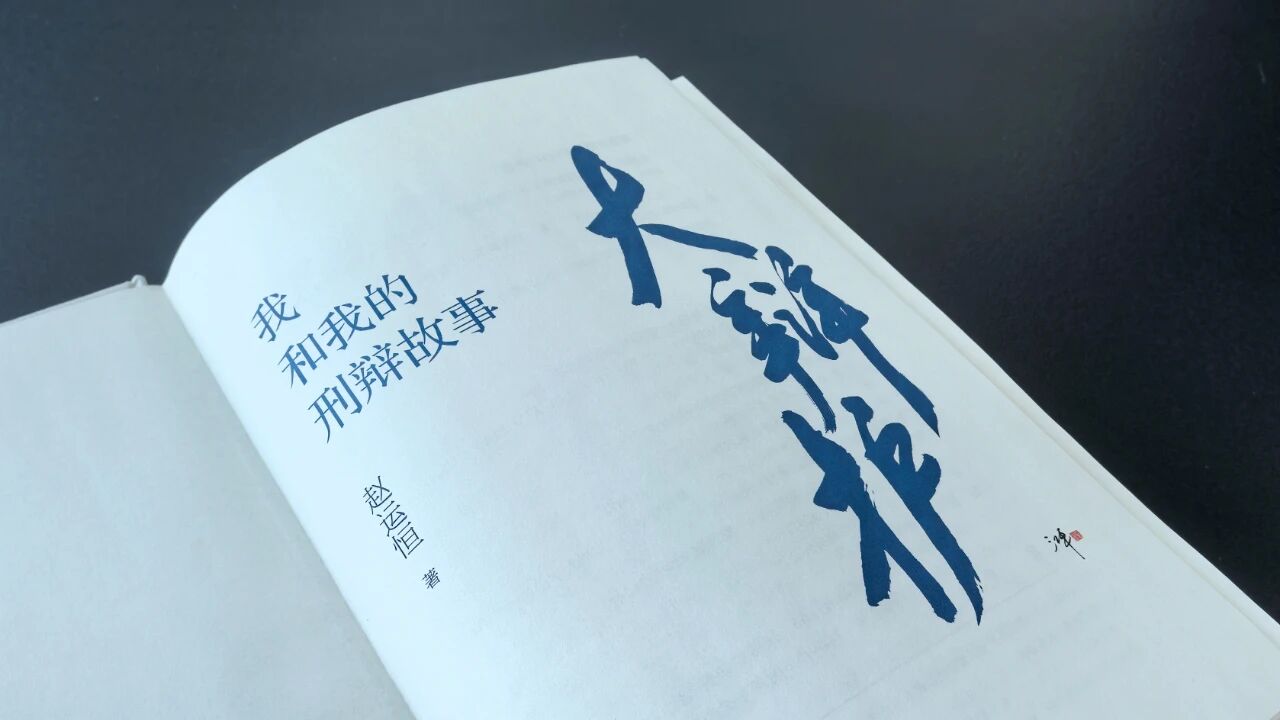 大辩护
我
和我的
刑辩故事
赵运恒 著